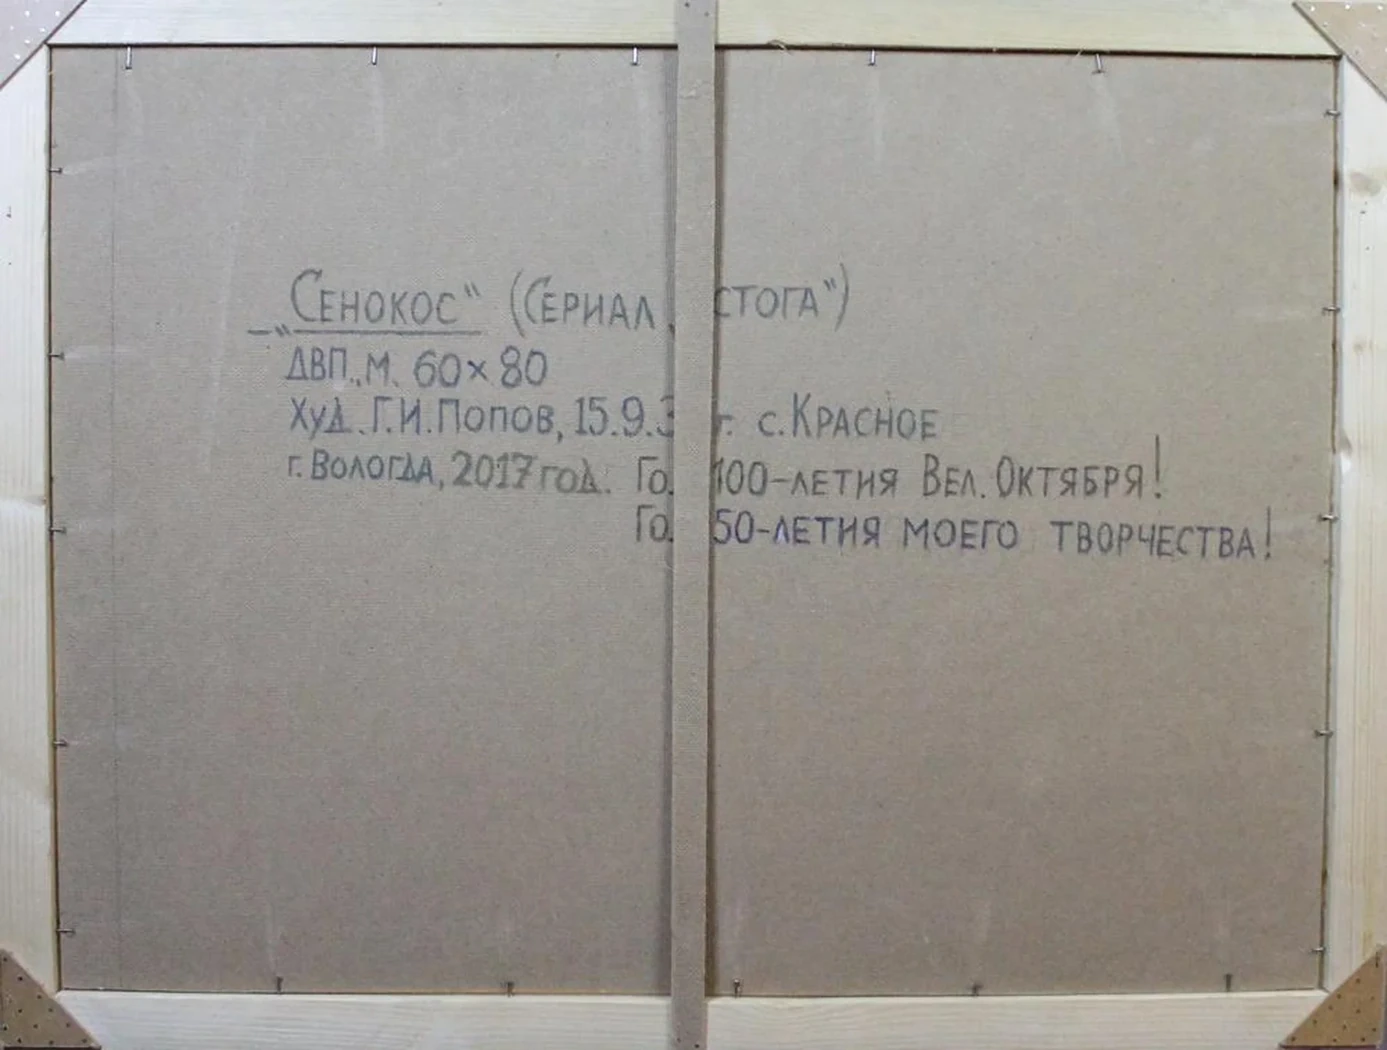 „Сенокос“ (Сериал „Стога“)
ДВП., М. 60×80
Худ. Г.И.Попов, 15.9.3 г. с.Красное
г. Вологда, 2017 год. Го 100-летия Вел. Октября!
Го 50-летия моего творчества!